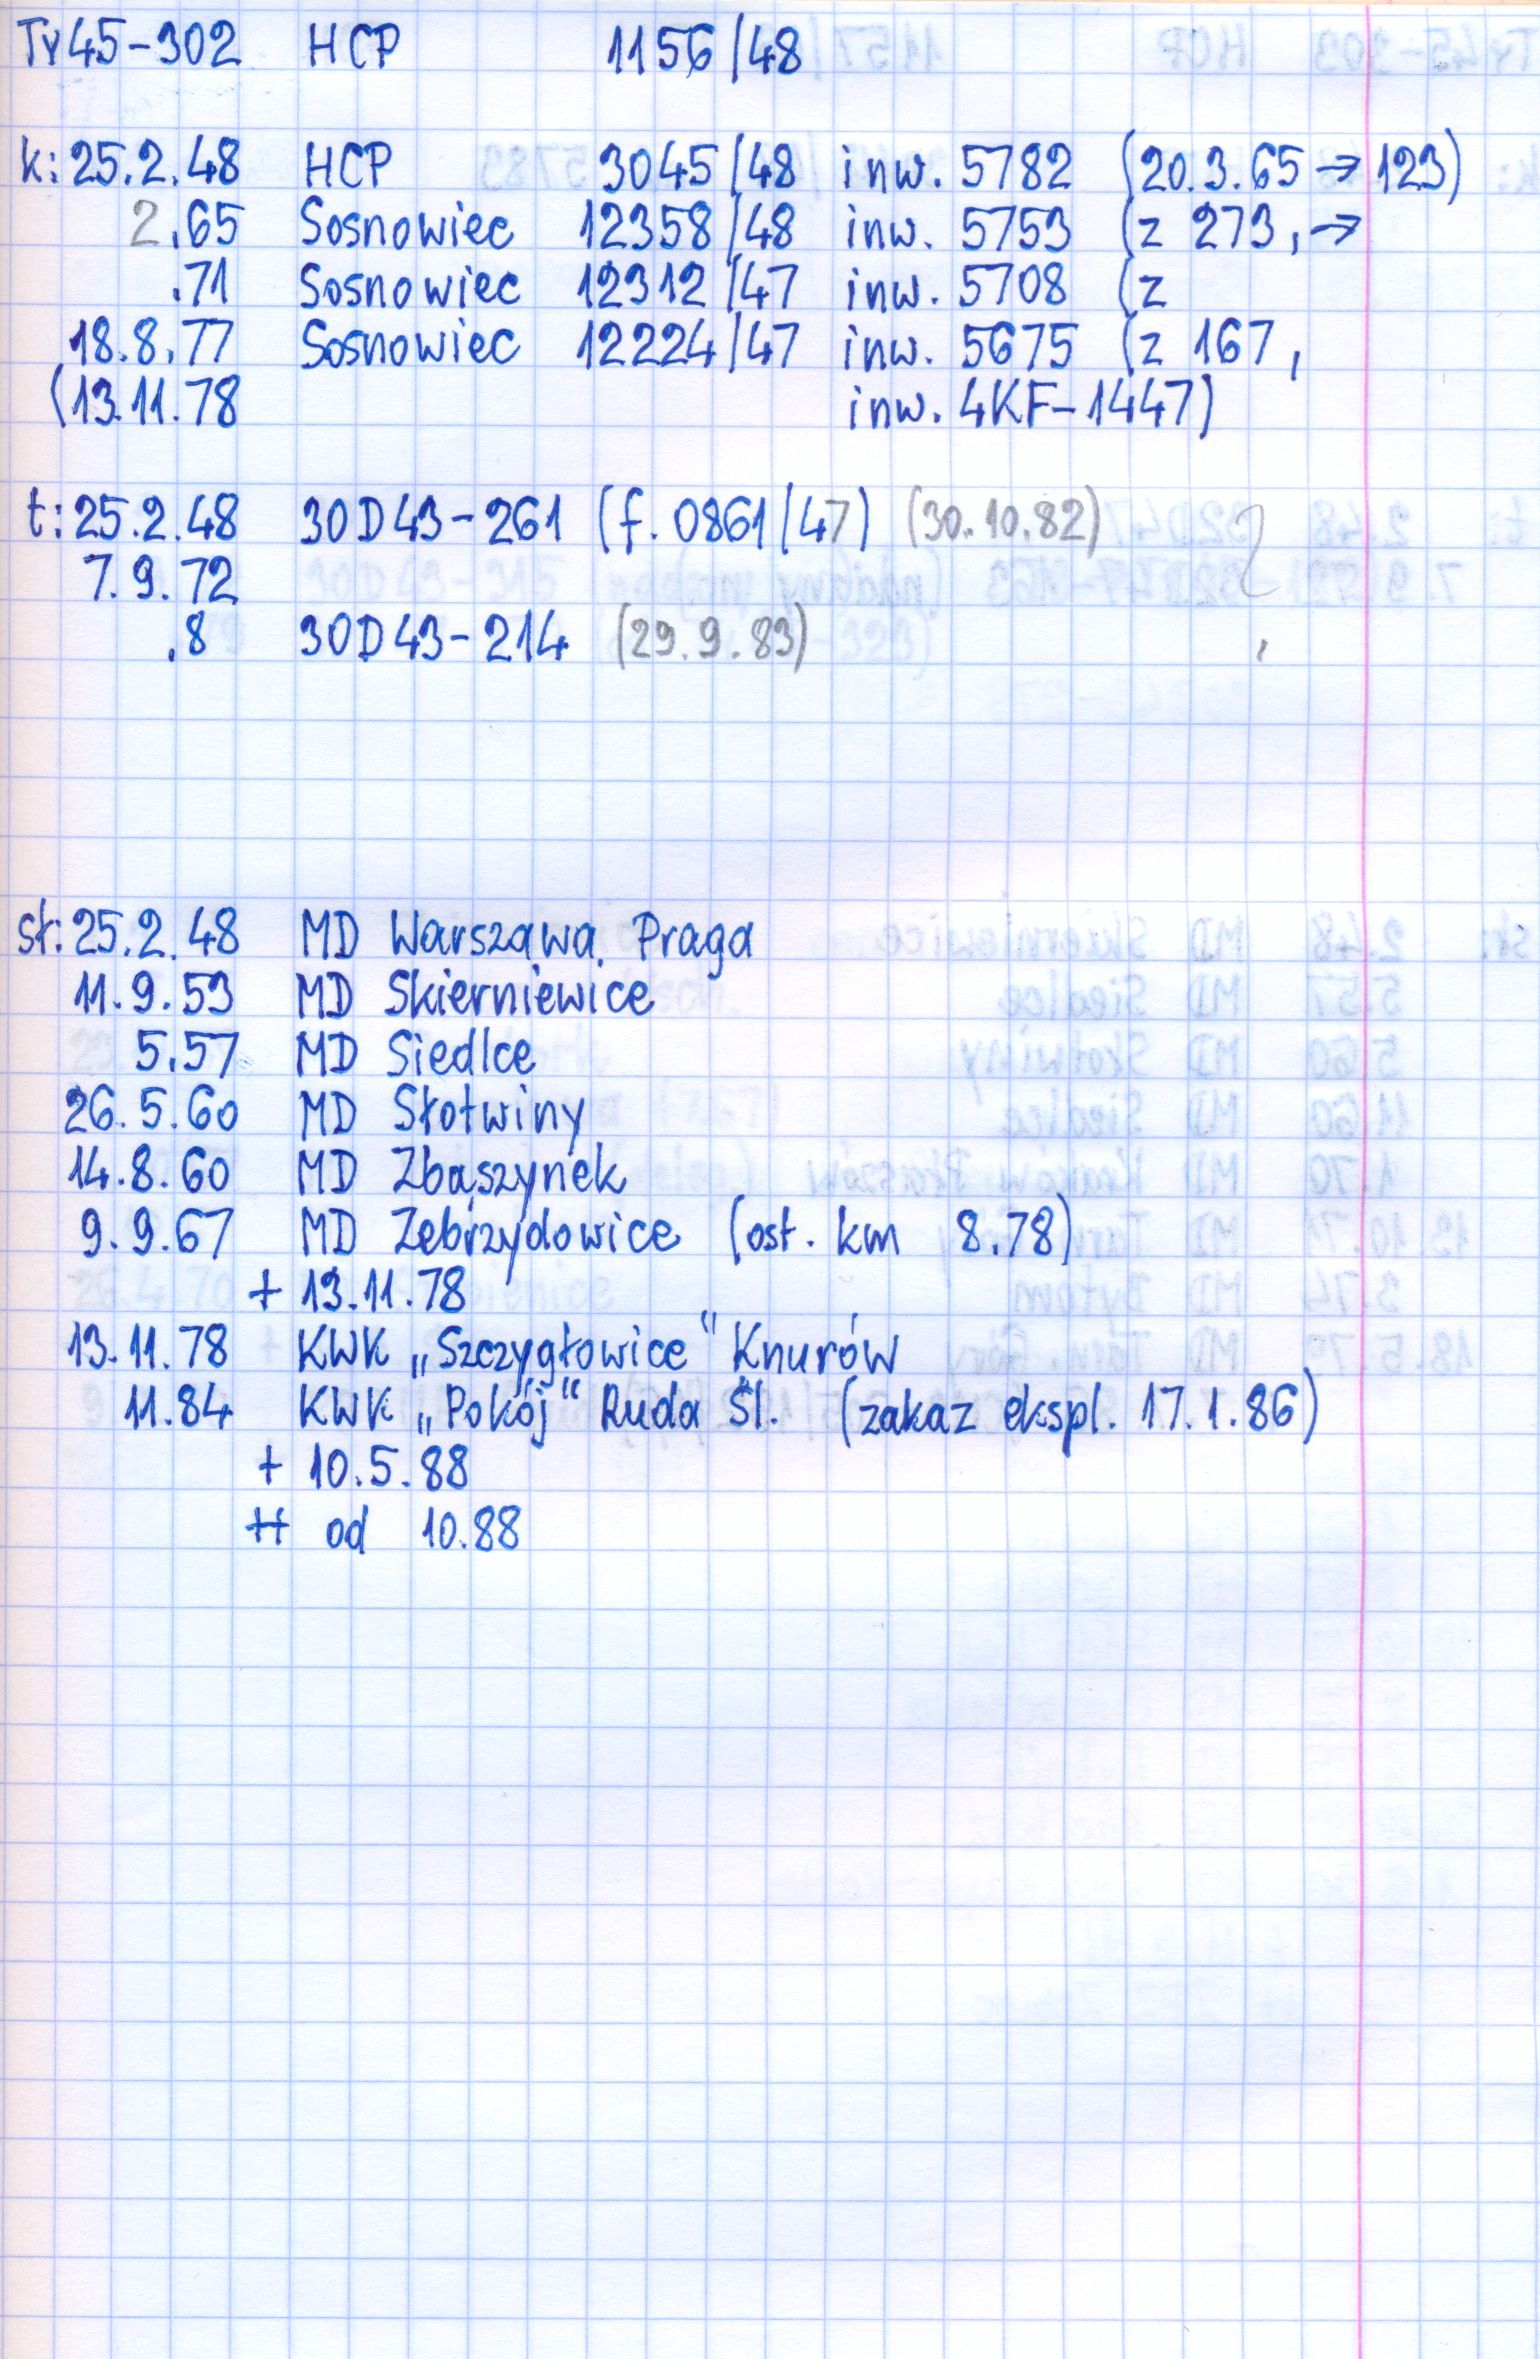 Ty45-302 HCP 1156/48
k: 25.2.48 HCP 3045/48 inw. 5782 (20.3.65 → 123)
2.65 Sosnowiec 12358/48 inw. 5753 (z 273, →
.71 Sosnowiec 12312/47 inw. 5708 (z
18.8.77 Sosnowiec 12224/47 inw. 5675 (z 167,
(13.11.78 inw. 4KF-1447)
t: 25.2.48 30D43-261 (f. 0861/47) (30.10.82)
7.9.72
.8 30D43-214 (29.9.83)
st: 25.2.48 MD Warszawa Praga
11.9.53 MD Skierniewice
5.57 MD Siedlce
26.5.60 MD Słotwiny
14.8.60 MD Zbąszynek
9.9.67 MD Zebrzydowice (ost. km 8.78)
+ 13.11.78
13.11.78 KWK „Szczygłowice" Knurów
11.84 KWK „Pokój" Ruda Śl. (zakaz ekspl. 17.1.86)
+ 10.5.88
++ od 10.88